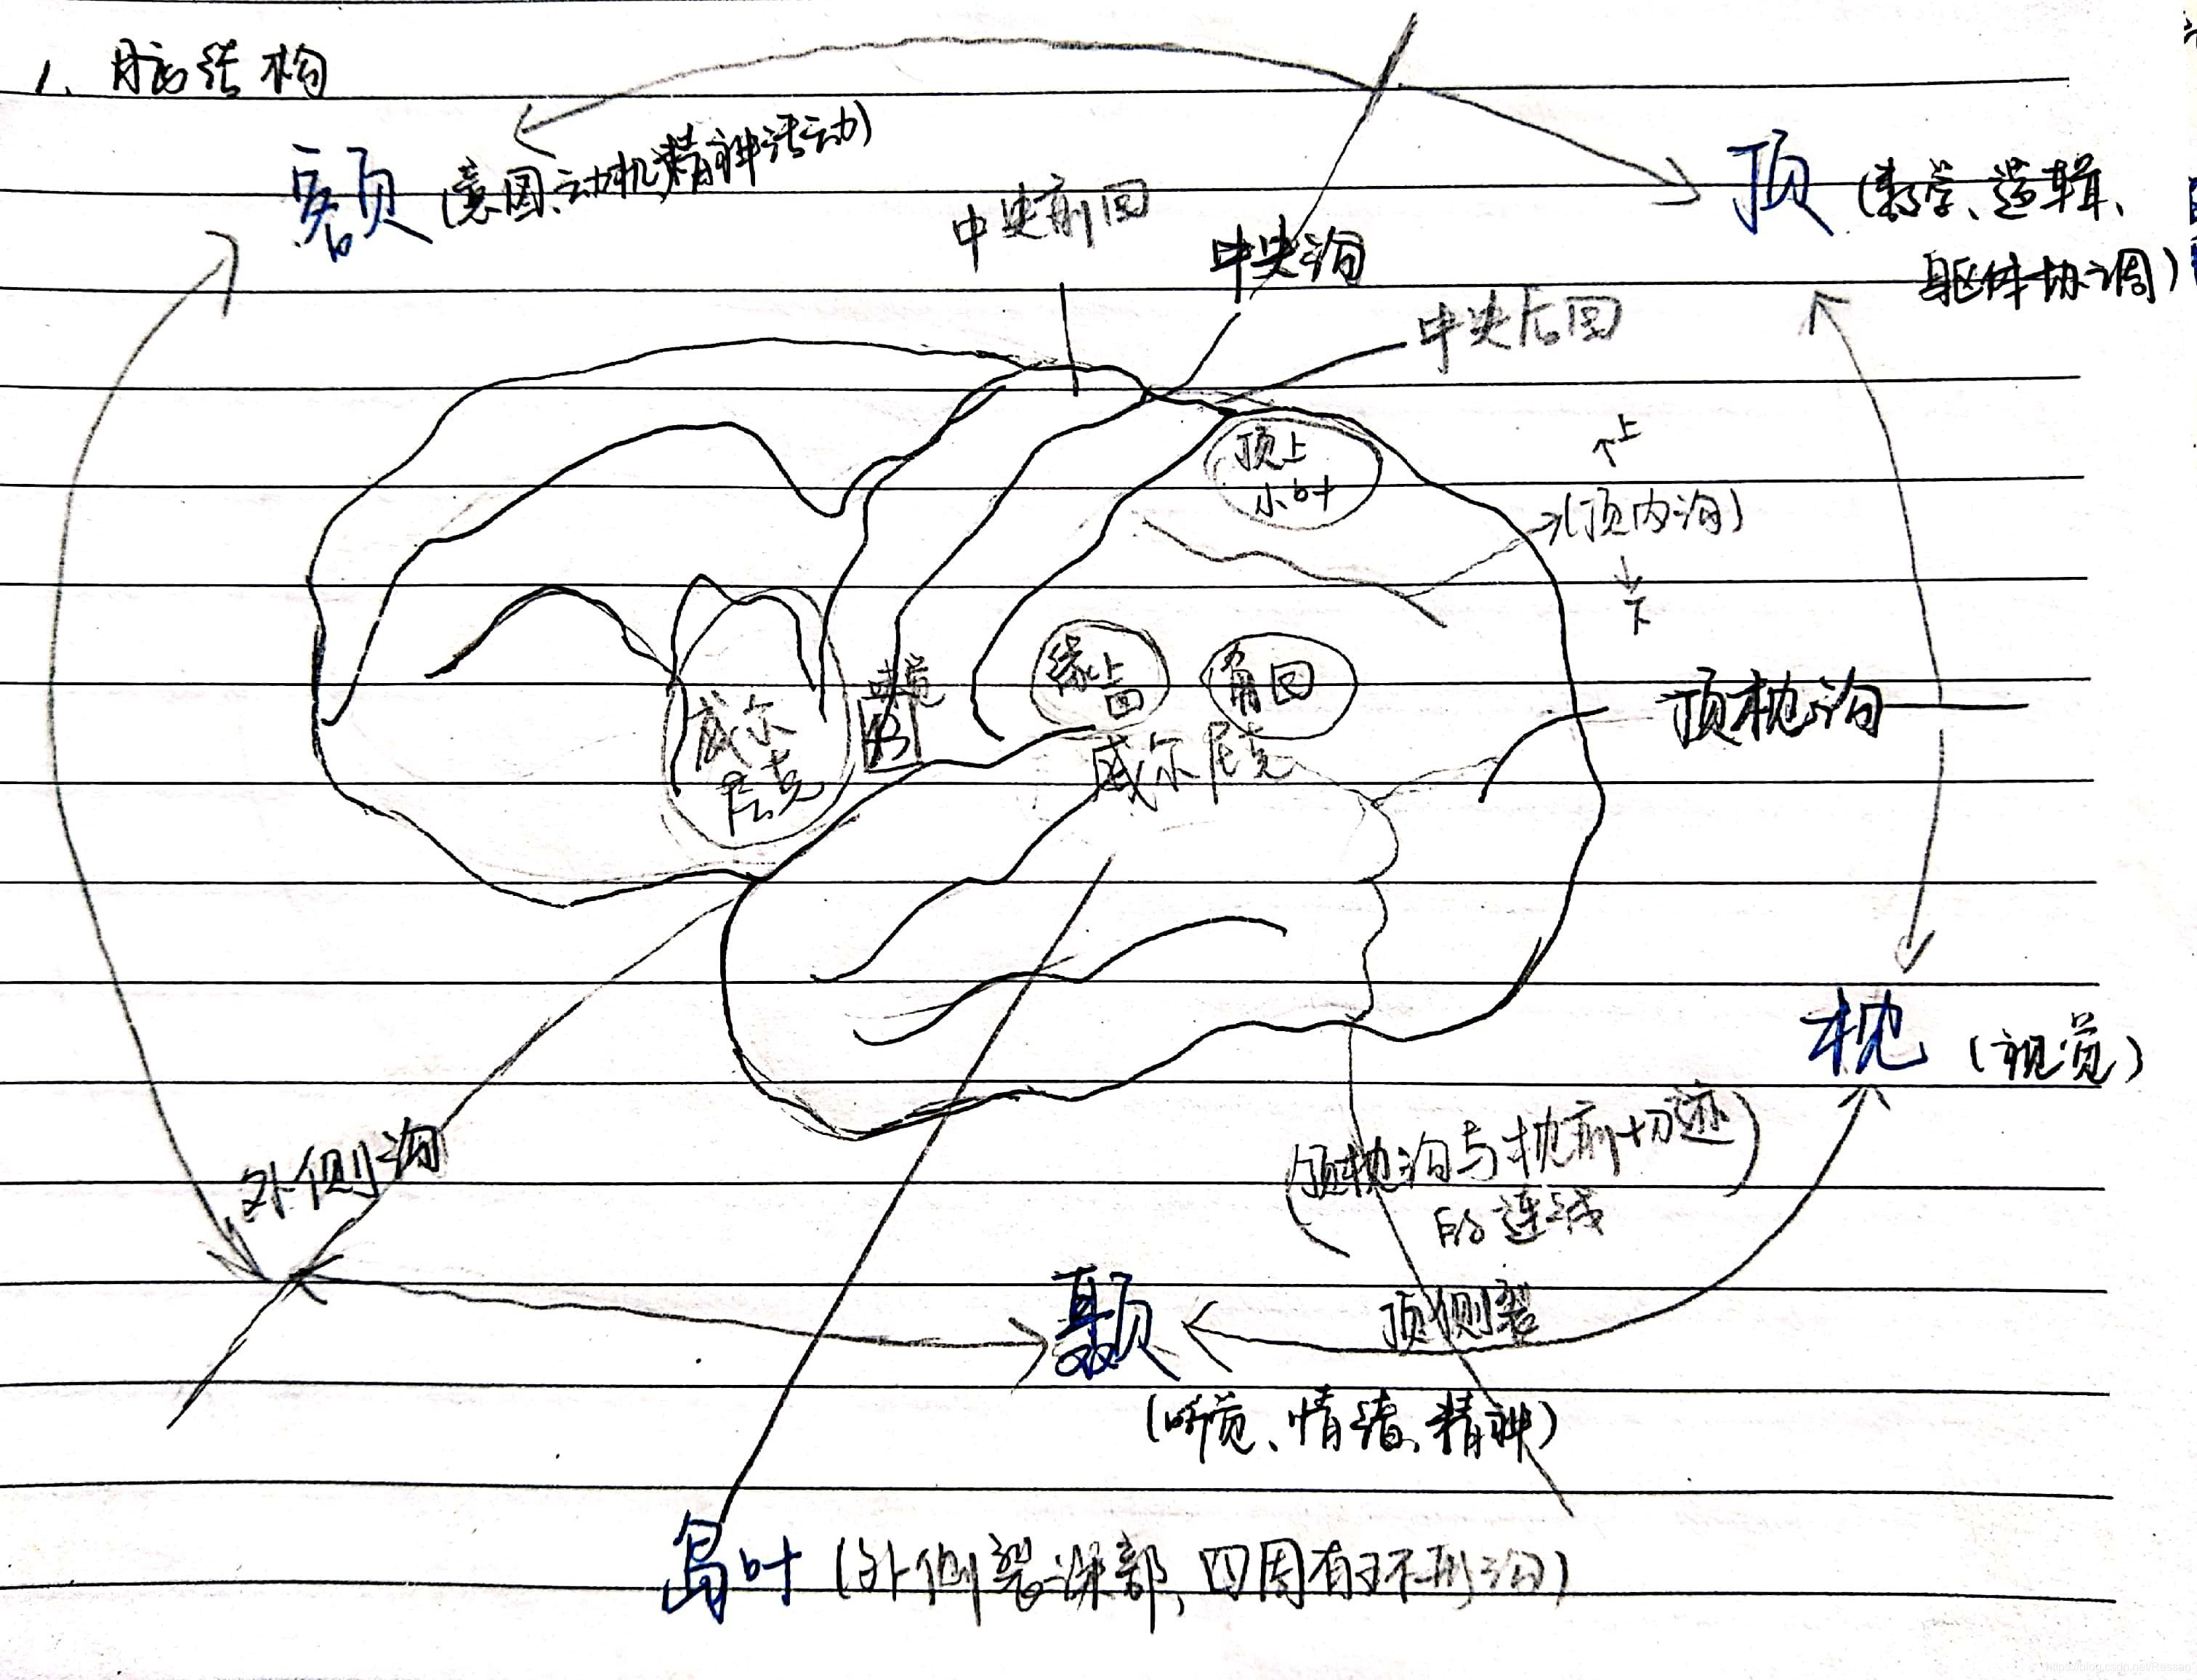 1、脑结构
额 (意图、动机、精神活动)
顶 (数学、逻辑、
躯体协调)
中央前回
中央沟
中央后回
顶上
小叶
↑上
(顶内沟)
↓
下
缘上
回
角回
威尔
尼克
威尔尼克
顶枕沟
枕 (视觉)
外侧沟
(顶枕沟与枕前切迹)
的连线
颞
顶侧裂
(听觉、情绪、精神)
岛叶 (外侧裂深部，四周有环形沟)